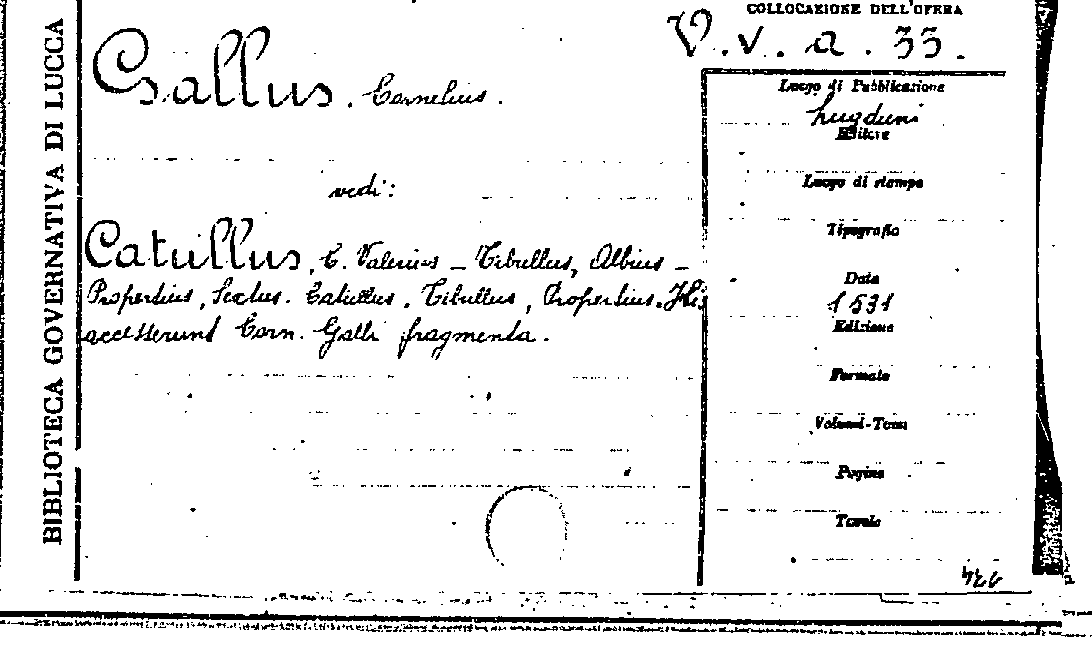 BIBLIOTECA GOVERNATIVA DI LUCCA
COLLOCAZIONE DELL'OPERA
V. v. a. 33.
Gallus. Cornelius.
vedi:
Catullus, C. Valerius – Tibullus, Albius –
Propertius, Sextus. Catullus. Tibullus, Propertius. His
accesserunt Corn. Galli fragmenta.
Luogo di Pubblicazione
Lugduni
Editore
Luogo di stampa
Tipografia
Data
1531
Edizione
Formato
Volumi-Tomi
Pagine
Tavole